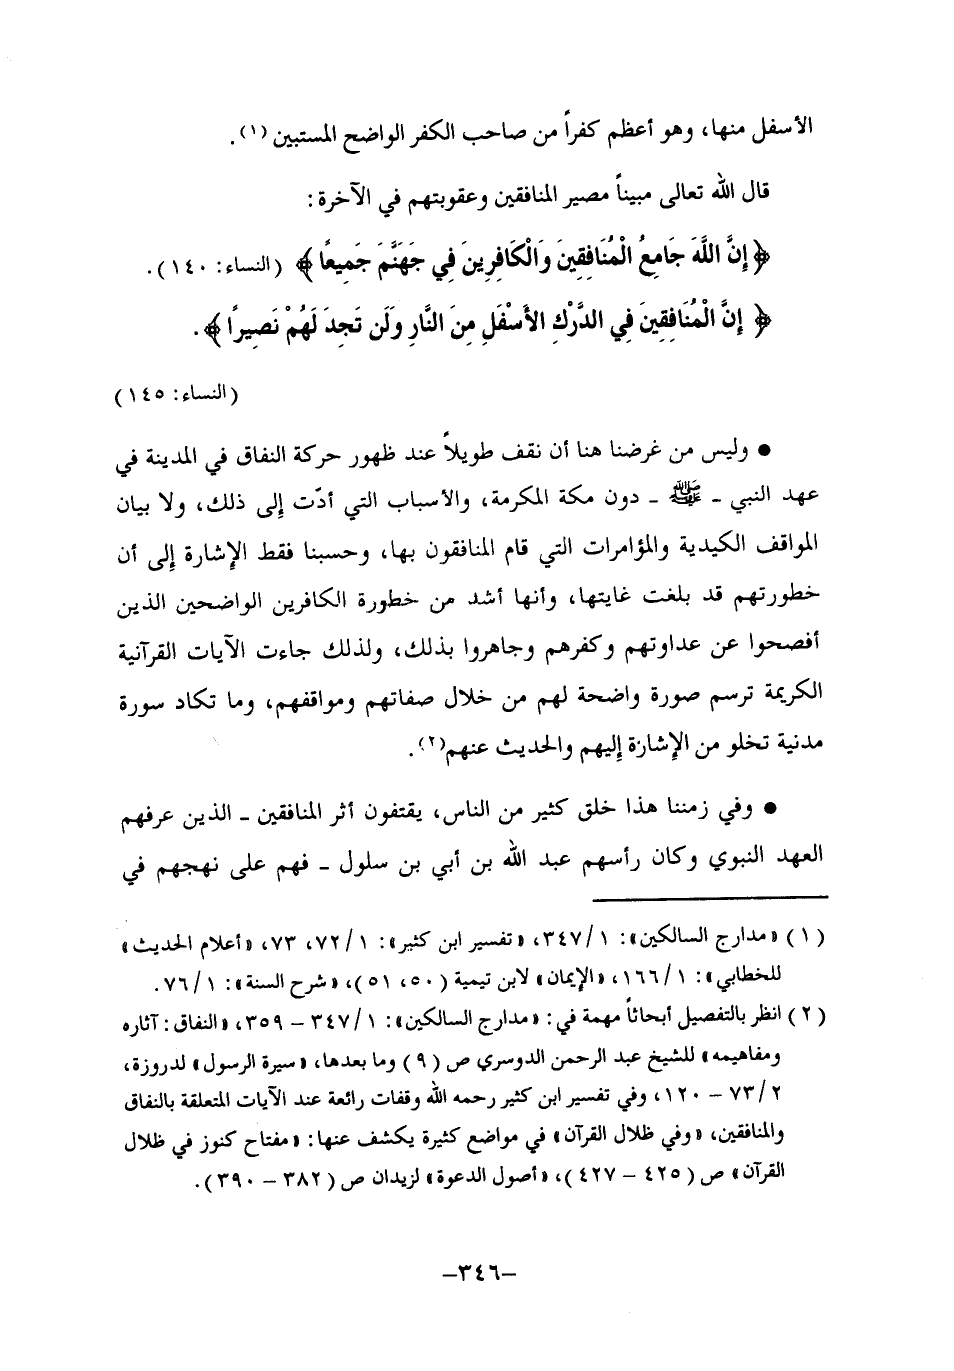 الأسفل منها، وهو أعظم كفراً من صاحب الكفر الواضح المستبين (١).
قال الله تعالى مبيناً مصير المنافقين وعقوبتهم في الآخرة:
﴿ إِنَّ اللَّهَ جَامِعُ الْمُنَافِقِينَ وَالْكَافِرِينَ فِي جَهَنَّمَ جَمِيعًا ﴾ (النساء: ١٤٠).
﴿ إِنَّ الْمُنَافِقِينَ فِي الدَّرْكِ الأَسْفَلِ مِنَ النَّارِ وَلَن تَجِدَ لَهُمْ نَصِيرًا ﴾.
(النساء: ١٤٥)
● وليس من غرضنا هنا أن نقف طويلاً عند ظهور حركة النفاق في المدينة في
عهد النبي ـ ﷺ ـ دون مكة المكرمة، والأسباب التي أدّت إلى ذلك، ولا بيان
المواقف الكيدية والمؤامرات التي قام المنافقون بها، وحسبنا فقط الإشارة إلى أن
خطورتهم قد بلغت غايتها، وأنها أشد من خطورة الكافرين الواضحين الذين
أفصحوا عن عداوتهم وكفرهم وجاهروا بذلك، ولذلك جاءت الآيات القرآنية
الكريمة ترسم صورة واضحة لهم من خلال صفاتهم ومواقفهم، وما تكاد سورة
مدنية تخلو من الإشارة إليهم والحديث عنهم(٢).
● وفي زمننا هذا خلق كثير من الناس، يقتفون أثر المنافقين ـ الذين عرفهم
العهد النبوي وكان رأسهم عبد الله بن أبي بن سلول ـ فهم على نهجهم في
(١) «مدارج السالكين»: ٣٤٧/١، «تفسير ابن كثير»: ٧٢/١، ٧٣، «أعلام الحديث»
للخطابي»: ١٦٦/١، «الإيمان» لابن تيمية (٥٠، ٥١)، «شرح السنة»: ٧٦/١.
(٢) انظر بالتفصيل أبحاثاً مهمة في: «مدارج السالكين»: ٣٤٧/١ – ٣٥٩، «النفاق: آثاره
ومفاهيمه» للشيخ عبد الرحمن الدوسري ص (٩) وما بعدها، «سيرة الرسول» لدروزة،
٧٣/٢ – ١٢٠، وفي تفسير ابن كثير رحمه الله وقفات رائعة عند الآيات المتعلقة بالنفاق
والمنافقين، «وفي ظلال القرآن» في مواضع كثيرة يكشف عنها: «مفتاح كنوز في ظلال
القرآن» ص (٤٢٥ – ٤٢٧)، «أصول الدعوة» لزيدان ص (٣٨٢ – ٣٩٠).
–٣٤٦–